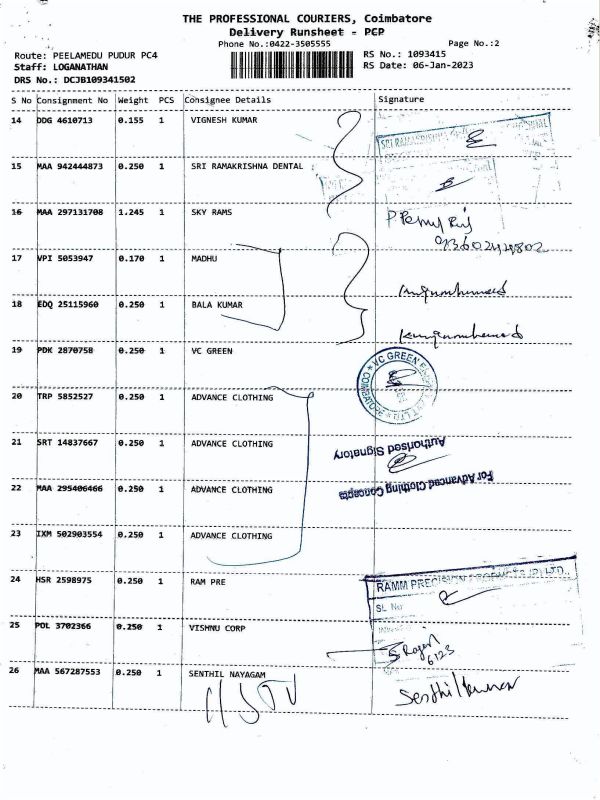 THE PROFESSIONAL COURIERS, Coimbatore
Delivery Runsheet - PCP
Phone No.:0422-3505555 Page No.:2
Route: PEELAMEDU PUDUR PC4 RS No.: 1093415
Staff: LOGANATHAN RS Date: 06-Jan-2023
DRS No.: DCJB109341502
S No Consignment No Weight PCS Consignee Details Signature
14 DDG 4610713 0.155 1 VIGNESH KUMAR
SRI RAMAKRISHNA
15 MAA 942444873 0.250 1 SRI RAMAKRISHNA DENTAL
16 MAA 297131708 1.245 1 SKY RAMS
17 VPI 5053947 0.170 1 MADHU
18 EDQ 25115960 0.250 1 BALA KUMAR
19 PDK 2870758 0.250 1 VC GREEN
VC GREEN
COIMBATORE
20 TRP 5852527 0.250 1 ADVANCE CLOTHING
21 SRT 14837667 0.250 1 ADVANCE CLOTHING
Authorised Signatory
For Advanced Clothing Concepts
22 MAA 295406466 0.250 1 ADVANCE CLOTHING
23 IXM 502903554 0.250 1 ADVANCE CLOTHING
24 HSR 2598975 0.250 1 RAM PRE
RAMM PRECISION PRODUCTS (P) LTD.
SL No
25 POL 3702366 0.250 1 VISHNU CORP
S Rajesh
6123
26 MAA 567287553 0.250 1 SENTHIL NAYAGAM
Senthilkumar